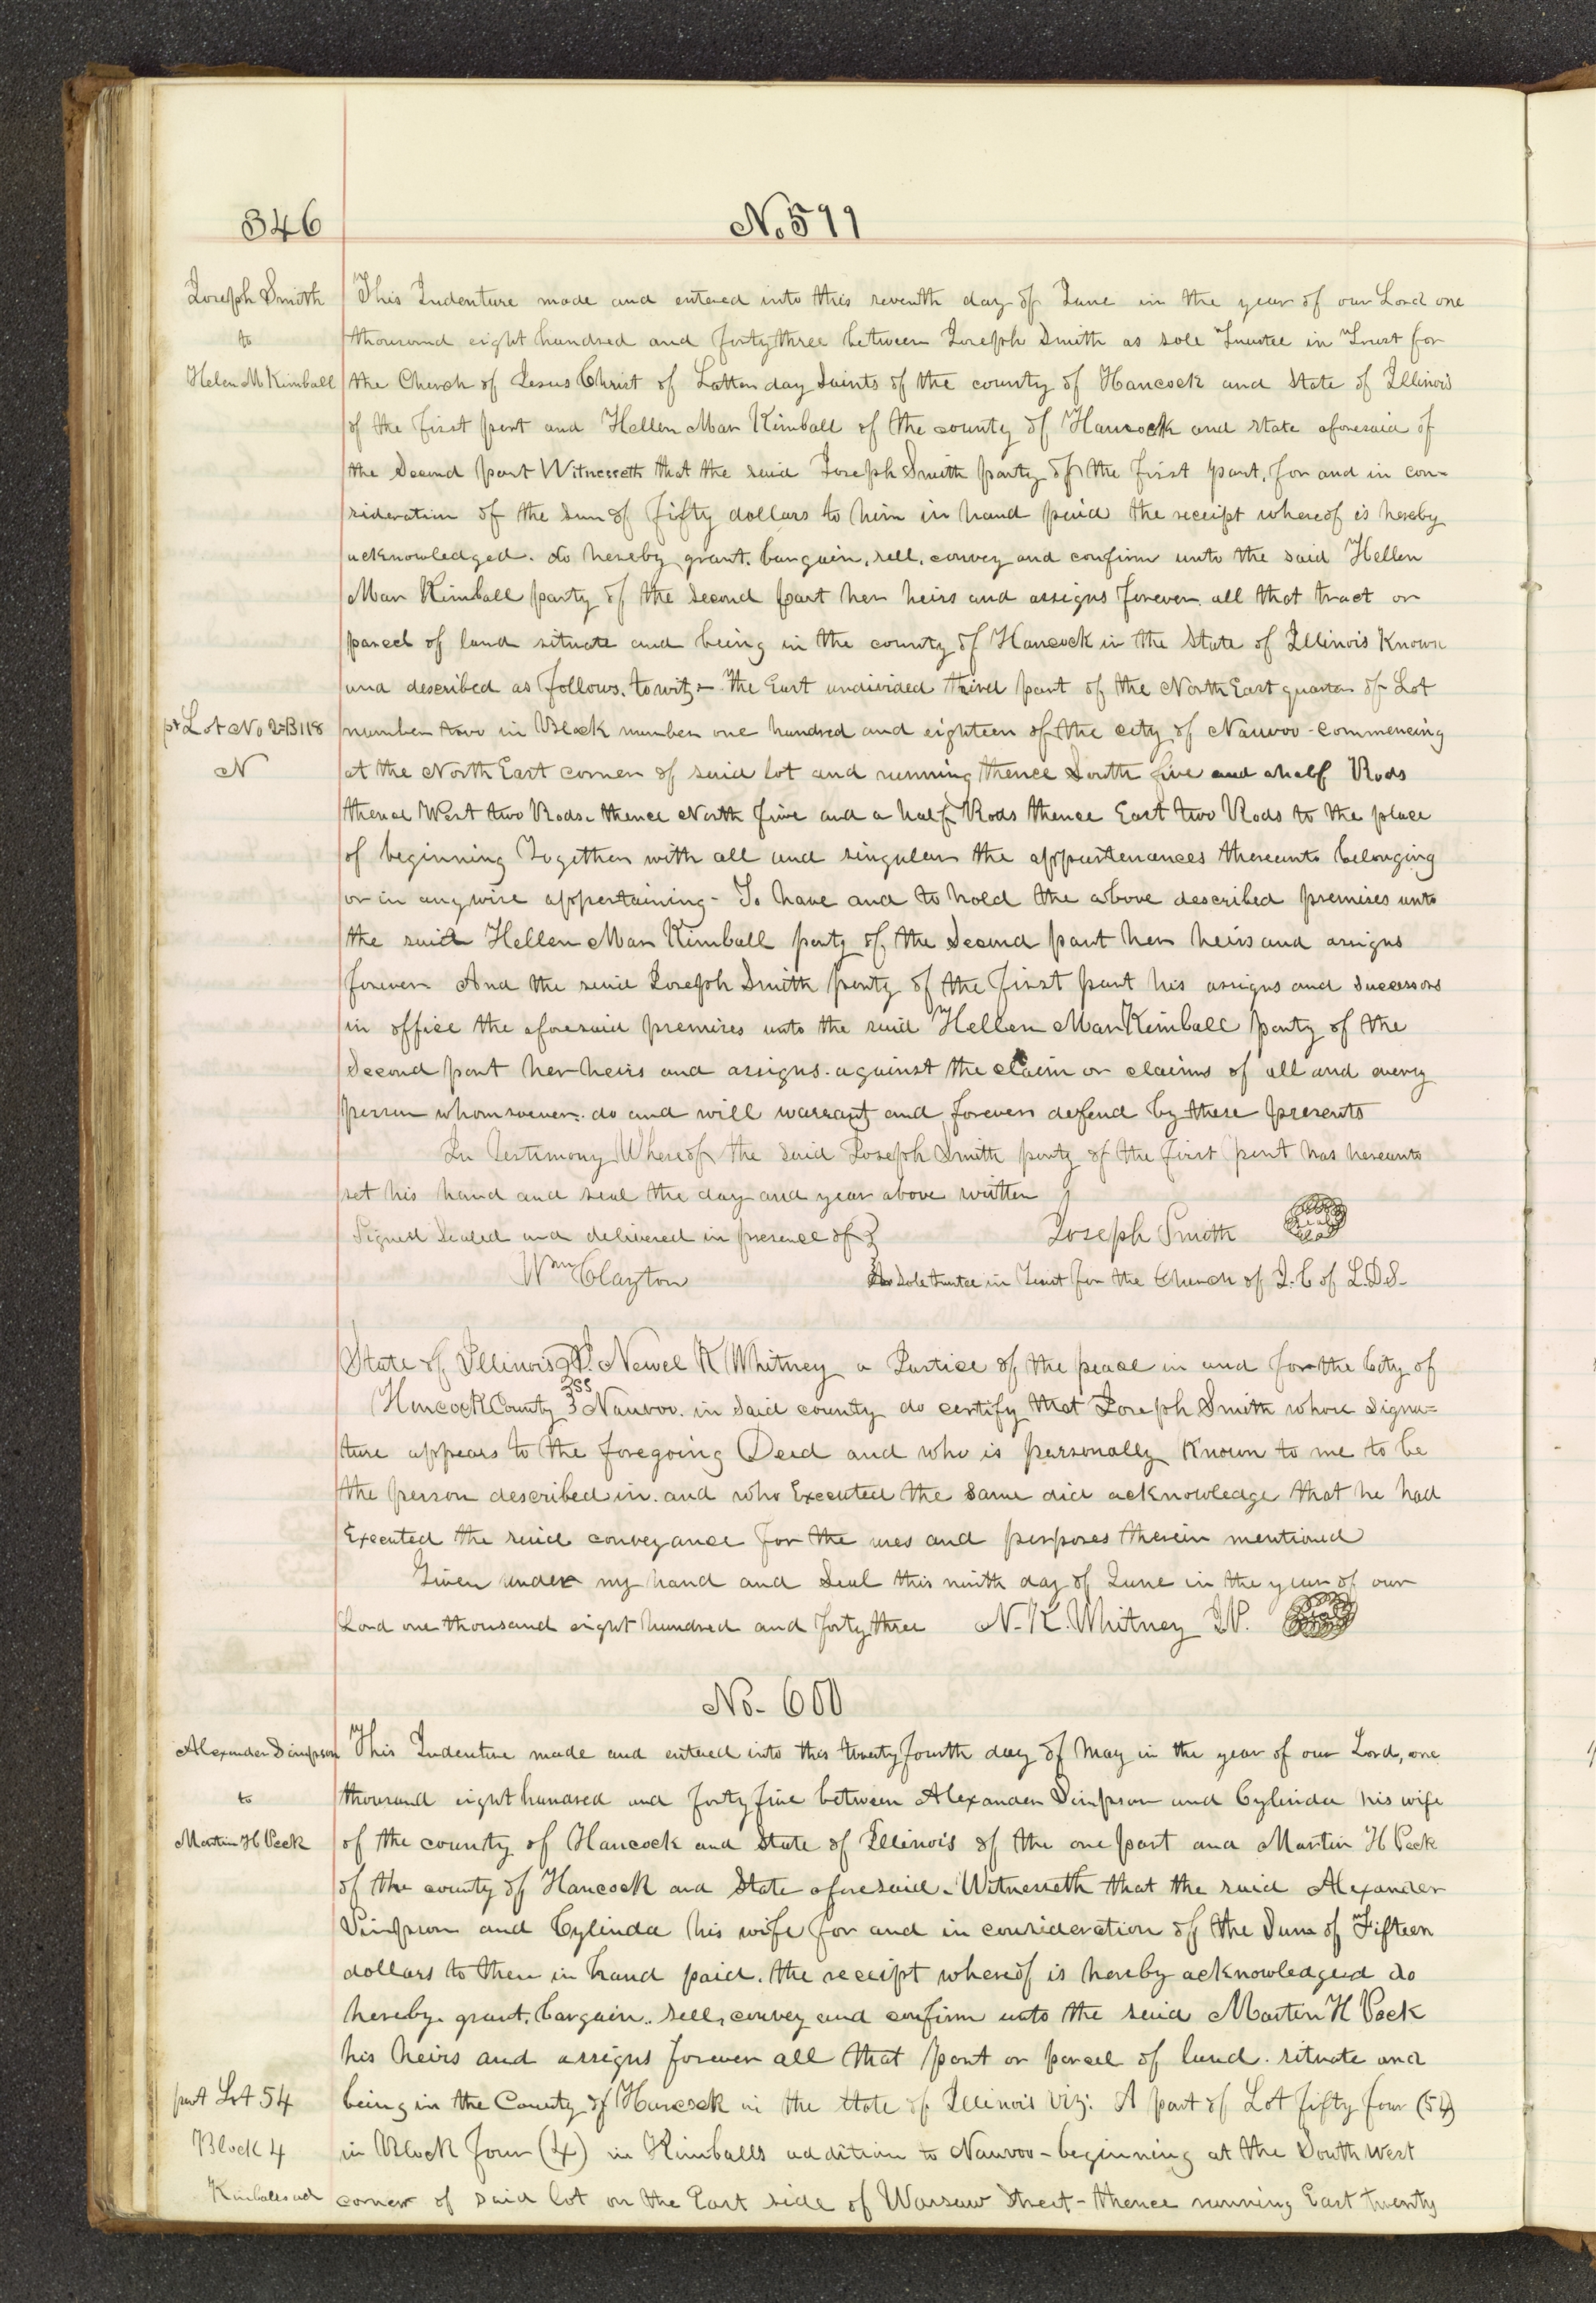 346
No. 599
Joseph Smith
to
Helen M Kimball
This Indenture made and entered into this seventh day of June in the year of our Lord one
thousand eight hundred and forty three between Joseph Smith as sole Trustee in Trust for
the Church of Jesus Christ of Latter day Saints of the county of Hancock and State of Illinois
of the first part and Hellen Mar Kimball of the county of Hancock and state aforesaid of
the Second part Witnesseth that the said Joseph Smith party of the first part, for and in con-
sideration of the sum of fifty dollars to him in hand paid the receipt whereof is hereby
acknowledged. do hereby grant. bargain, sell, convey and confirm unto the said Hellen
Mar Kimball party of the second part her heirs and assigns forever. all that tract or
parcel of land situate and being in the county of Hancock in the State of Illinois Known
and described as follows. to wit;- The East undivided third part of the North East quarter of Lot
pt Lot No 2=B118
N
number two in Block number one hundred and eighteen of the city of Nauvoo - commencing
at the North East corner of said lot and running thence South five and a half Rods
thence West two Rods. thence North five and a half Rods thence East two Rods to the place
of beginning Together with all and singular the appurtenances thereunto belonging
or in anywise appertaining - To have and to hold the above described premises unto
the said Hellen Mar Kimball party of the Second part her heirs and assigns
forever And the said Joseph Smith party of the first part his assigns and successors
in office the aforesaid premises unto the said Hellen Mar Kimball party of the
Second part her heirs and assigns. against the claim or claims of all and every
person whomsoever. do and will warrant and forever defend by these presents
In Testimony Whereof the said Joseph Smith party of the first part has hereunto
set his hand and seal the day and year above written
Signed Sealed and delivered in presence of } Joseph Smith Seal
Wm Clayton As Sole trustee in Trust for the Church of J. C of L.D.S-
State of Illinois } I. Newel K Whitney a Justice of the peace in and for the City of
Hancock County } ss Nauvoo. in said county do certify that Joseph Smith whose signa=
ture appears to the foregoing Deed and who is personally Known to me to be
the person described in. and who Executed the same did acknowledge that he had
Executed the said conveyance for the uses and perposes therein mentioned
Given under my hand and Seal this ninth day of June in the year of our
Lord one thousand eight hundred and forty three N. K. Whitney J.P. Seal
No- 600
Alexander Simpson
to
Martin H Peck
This Indenture made and entered into this twenty fourth day of May in the year of our Lord, one
thousand eight hundred and forty five between Alexander Simpson and Cylinda his wife
of the county of Hancock and State of Illinois of the one part and Martin H Peck
of the county of Hancock and State aforesaid. Witnesseth that the said Alexander
Simpson and Cylinda his wife for and in consideration of the Sum of Fifteen
dollars to them in hand paid. the receipt whereof is hereby acknowledged do
hereby. grant, bargain.. sell, convey and confirm unto the said Martin H Peck
his heirs and assigns forever all that part or parcel of land. situate and
part Lot 54
Block 4
Kimballs ad
being in the County of Hancock in the state of Illinois viz: A part of Lot fifty four (54)
in Block four (4) in Kimballs addition to Nauvoo - beginning at the South West
corner of said lot on the East side of Warsaw Street - thence running East twenty